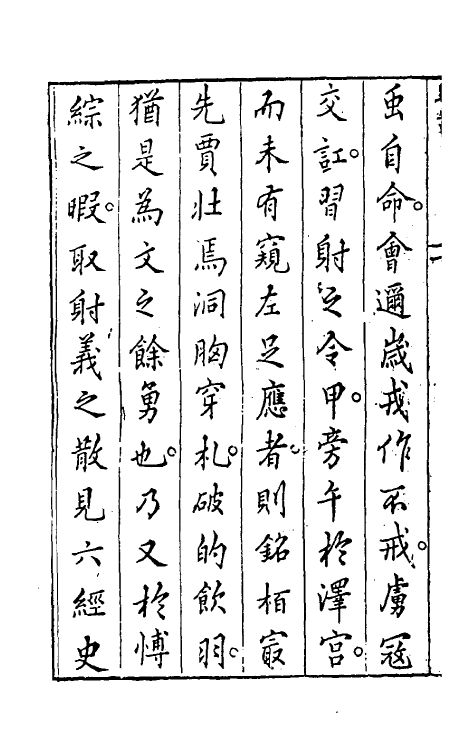 䖝自命。會邇歲戎作不戒。虜冦
交訌。習射之令甲。旁午於澤宫。
而未有窺左足應者。則銘栢㝡
先賈壯焉洞胸穿札。破的飲羽。
猶是為文之餘勇也。乃又於愽
綜之暇。取射義之散見六經史